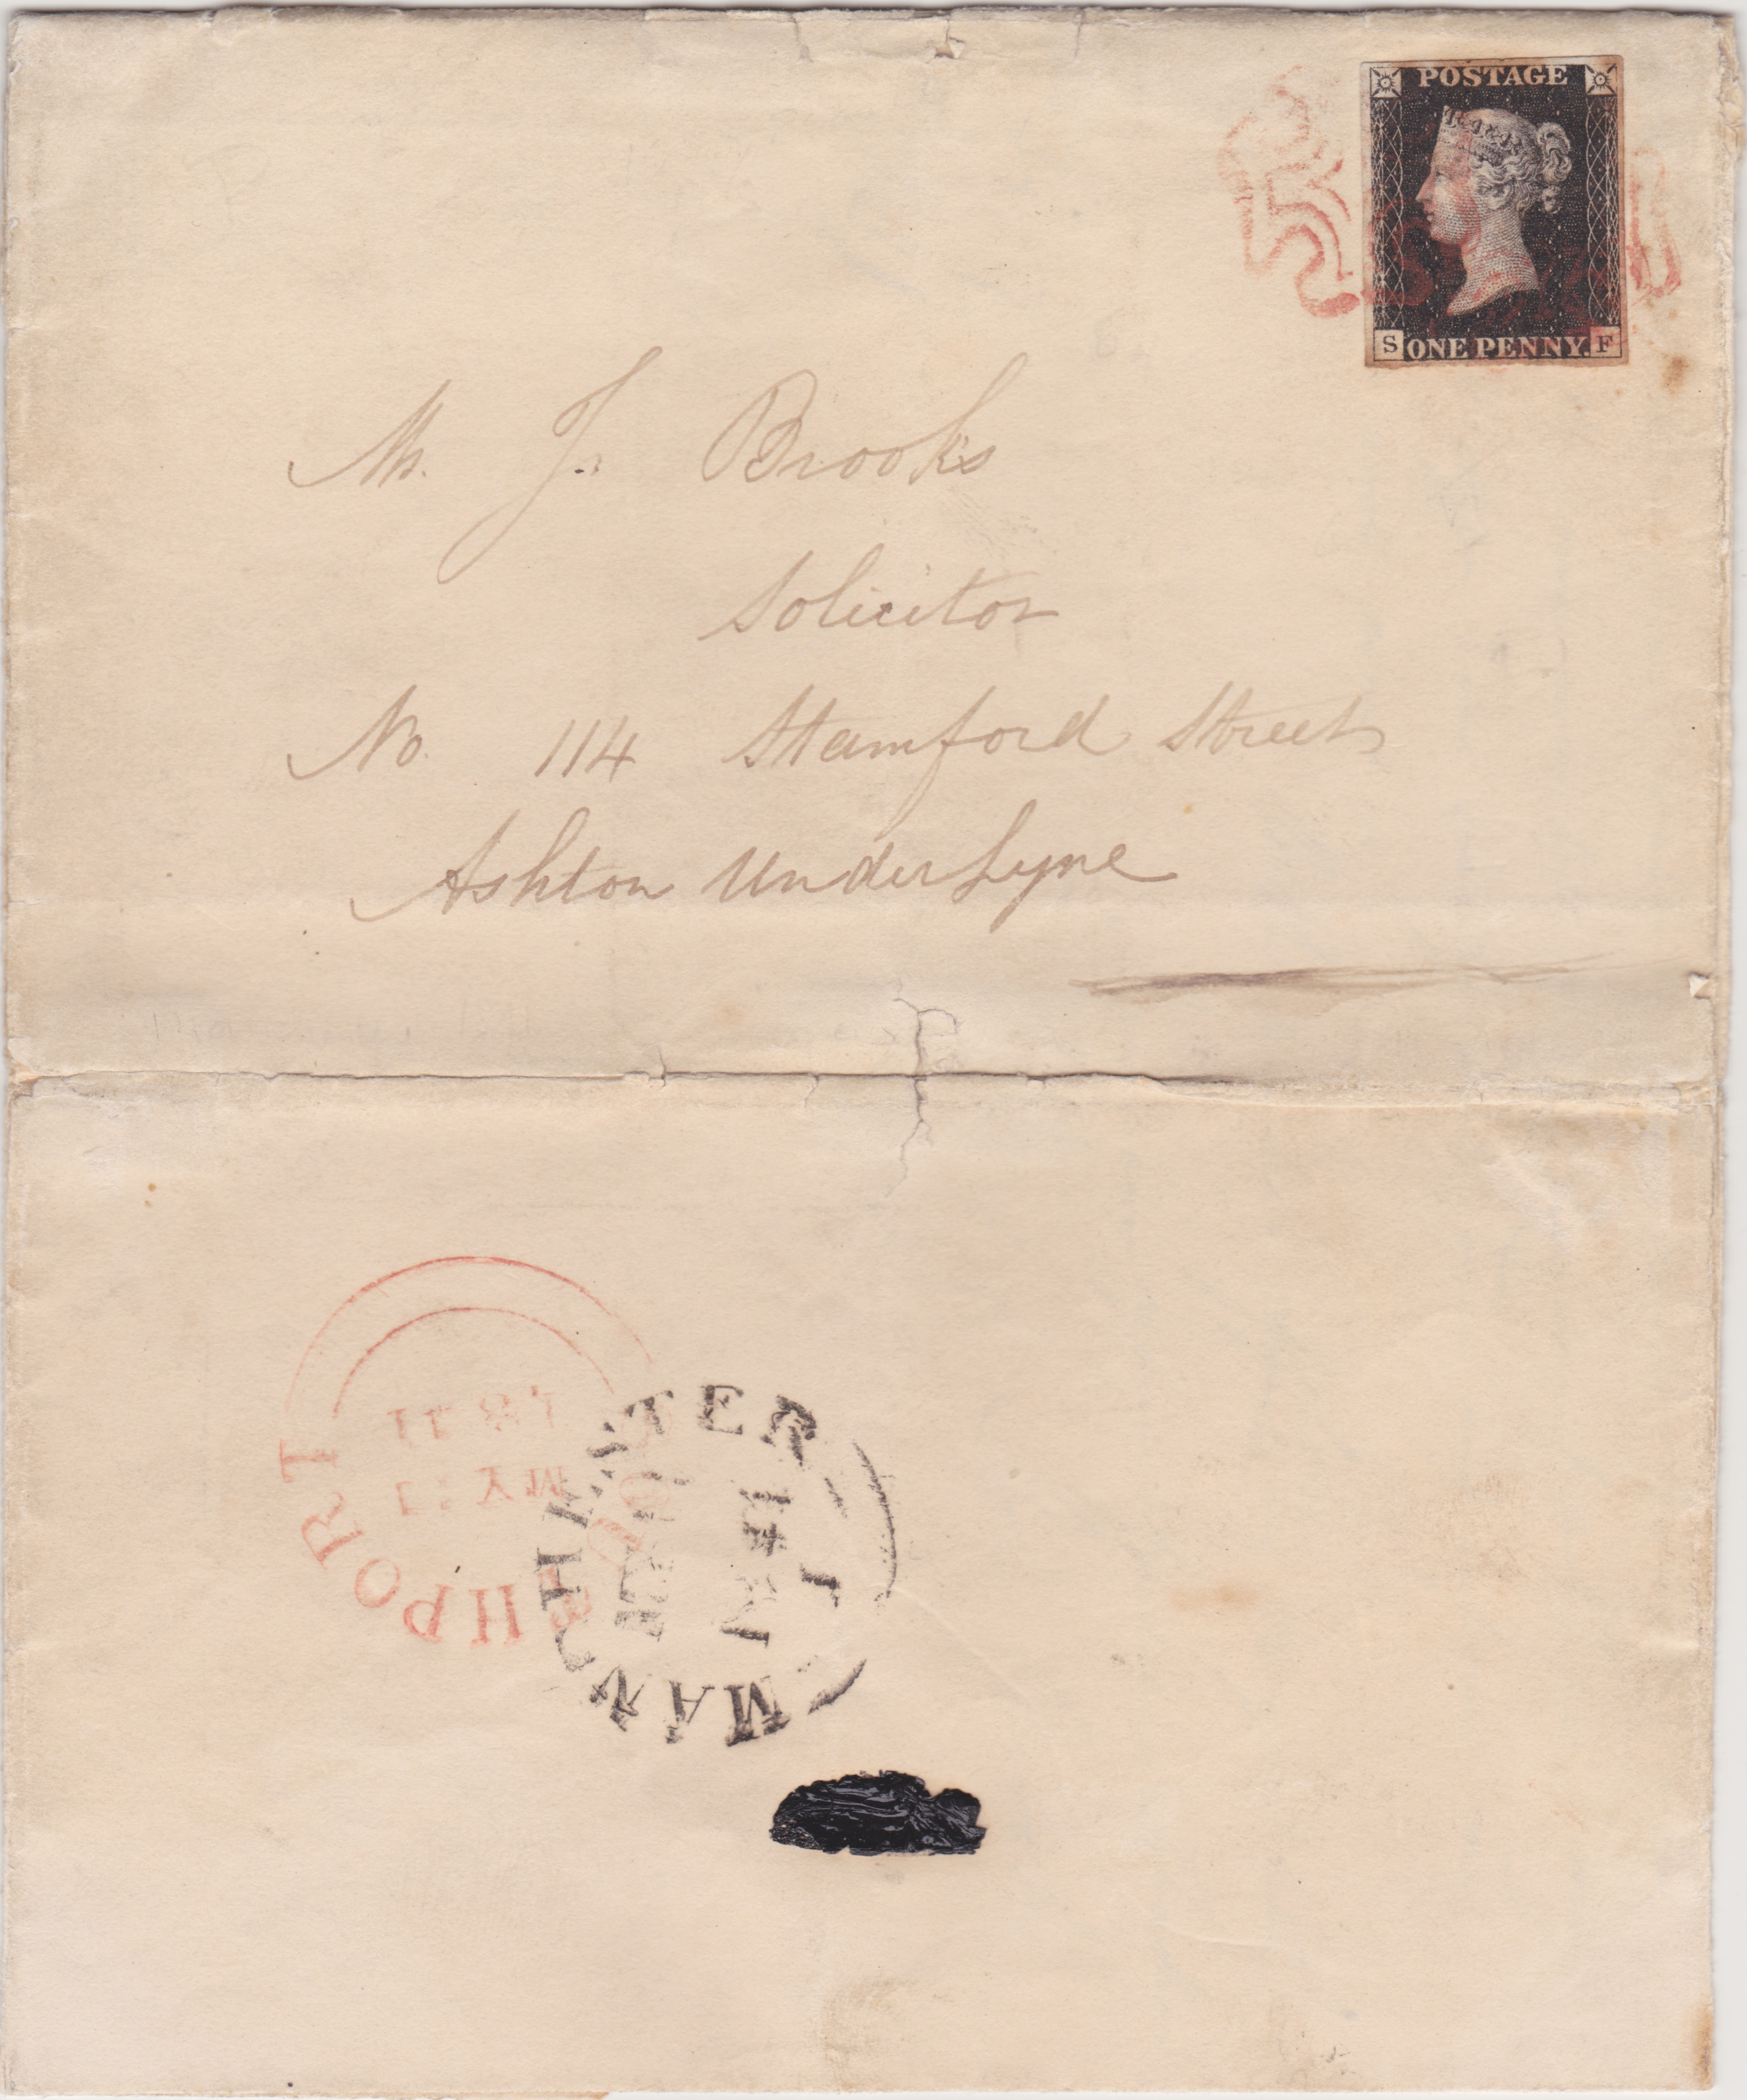 POSTAGE
S ONE PENNY. F
Mr. J. Brooks
Solicitor
No. 114 Stamford Street
Ashton Under Lyne
MANCHESTER